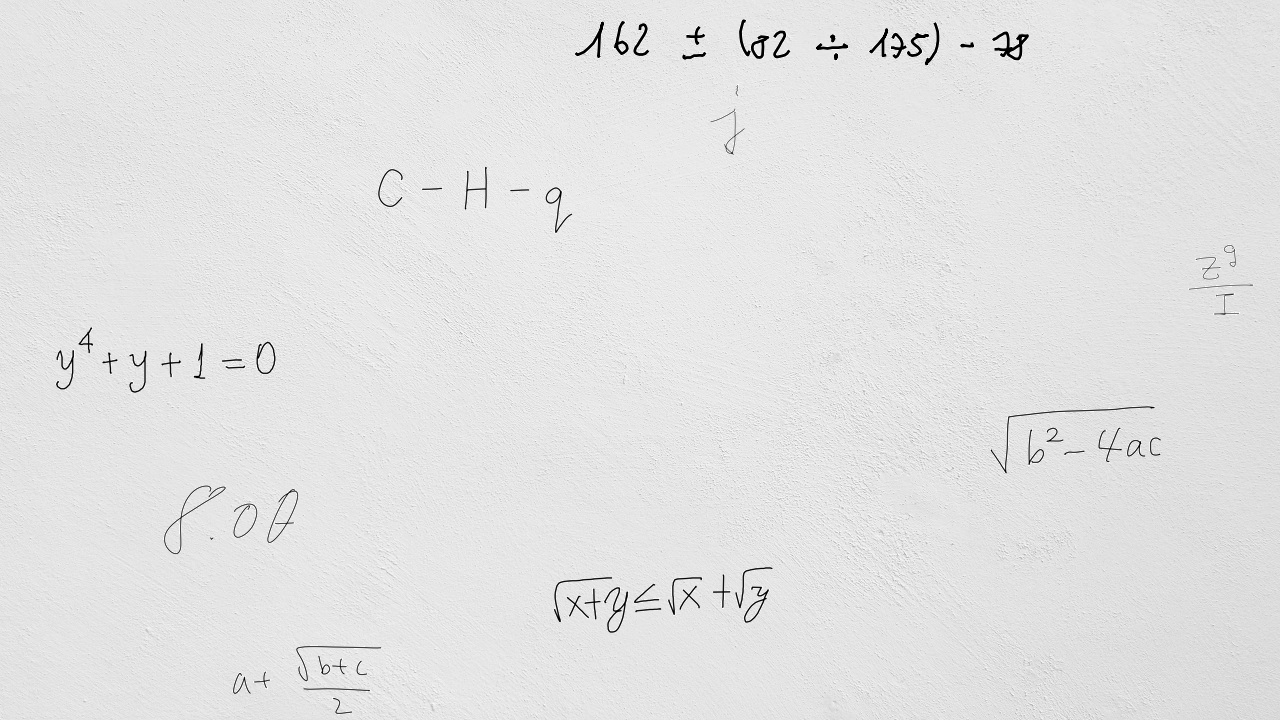 162 ± (82 ÷ 175) - 78
j
C - H - q
z^g/I
y^4 + y + 1 = 0
√(b^2 - 4ac)
8.0θ
√(x+y) ≤ √x + √y
a + √(b+c)/2